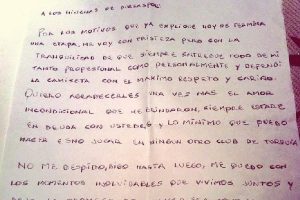 A LOS HINCHAS DE
POR LOS MOTIVOS QUE YA EXPLIQUE HOY SE TERMINA
UNA ETAPA, ME VOY CON TRISTEZA PERO CON LA
TRANQUILIDAD DE QUE SIEMPRE ENTREGUE TODO DE MI
TANTO PROFESIONAL COMO PERSONALMENTE Y DEFENDI
LA CAMISETA CON EL MAXIMO RESPETO Y CARIÑO.
QUIERO AGRADECERLES UNA VEZ MAS EL AMOR
INCONDICIONAL QUE ME BRINDARON, SIEMPRE ESTARE
EN DEUDA CON USTEDES Y LO MINIMO QUE PUEDO
HACER ES NO JUGAR EN NINGUN OTRO CLUB DE TURQUIA
NO ME DESPIDO, DIGO HASTA LUEGO, ME QUEDO CON
LOS MOMENTOS INOLVIDABLES QUE VIVIMOS JUNTOS Y